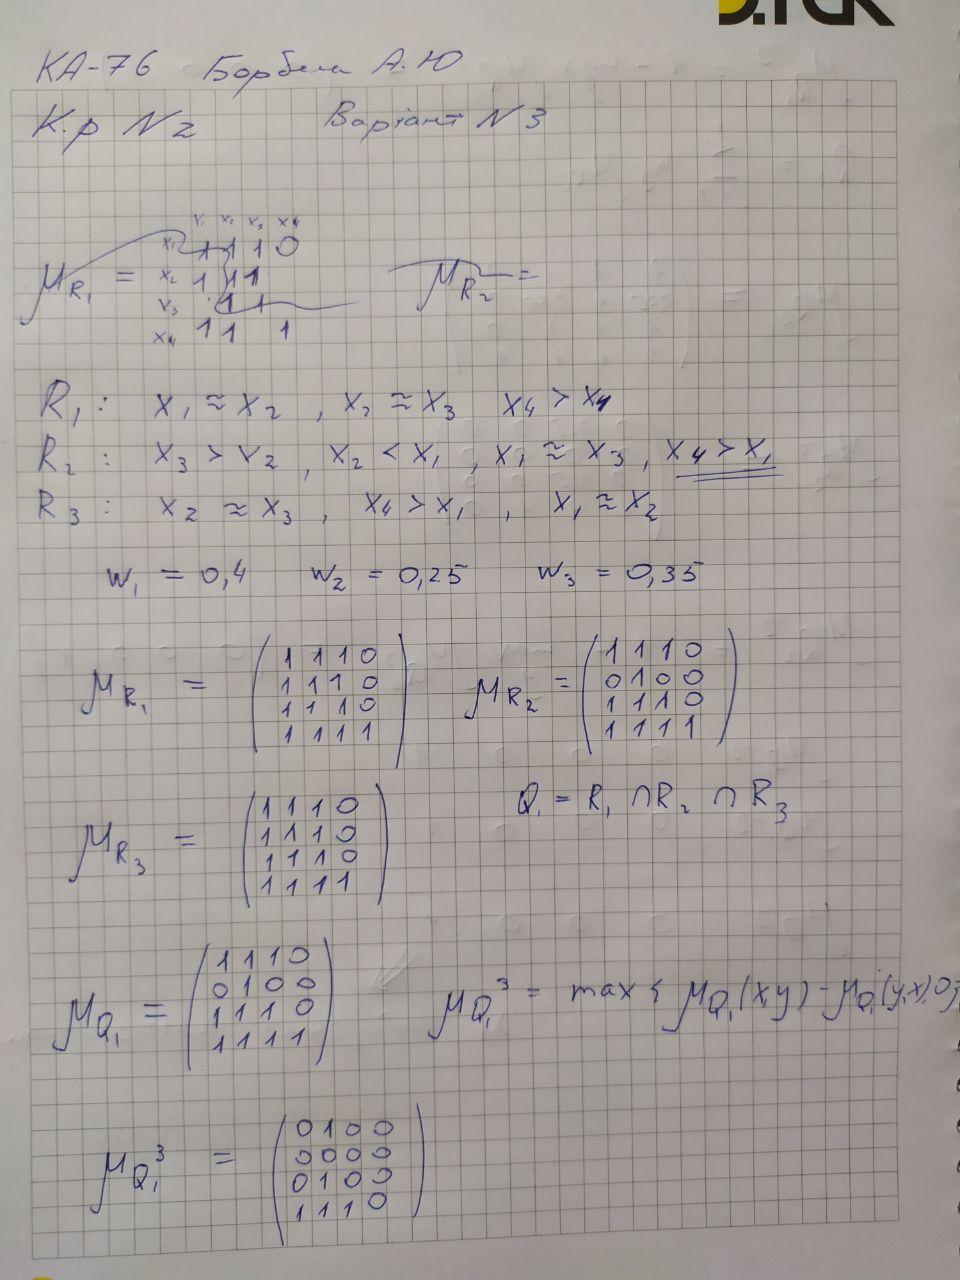 КА-76 Борбела А.Ю
К.р N2 Варіант N3
x₁ x₂ x₃ x₄
x₁ 1 1 1 0
μ_R₁ = x₂ 1 1 1 μ_R₂ =
x₃ 1 1
x₄ 1 1 1
R₁: x₁ ≈ x₂, x₂ ≈ x₃ x₄ > x₄
R₂: x₃ > x₂, x₂ < x₁, x₁ ≈ x₃, x₄ > x₁
R₃: x₂ ≈ x₃, x₄ > x₁, x₁ ≈ x₂
w₁ = 0,4 w₂ = 0,25 w₃ = 0,35
μ_R₁ = (1 1 1 0
1 1 1 0
1 1 1 0
1 1 1 1)
μ_R₂ = (1 1 1 0
0 1 0 0
1 1 1 0
1 1 1 1)
μ_R₃ = (1 1 1 0
1 1 1 0
1 1 1 0
1 1 1 1)
Q₁ = R₁ ∩ R₂ ∩ R₃
μ_Q₁ = (1 1 1 0
0 1 0 0
1 1 1 0
1 1 1 1)
μ_Q₁³ = max { μ_Q₁(x,y) - μ_Q₁(y,x), 0}
μ_Q₁³ = (0 1 0 0
0 0 0 0
0 1 0 0
1 1 1 0)